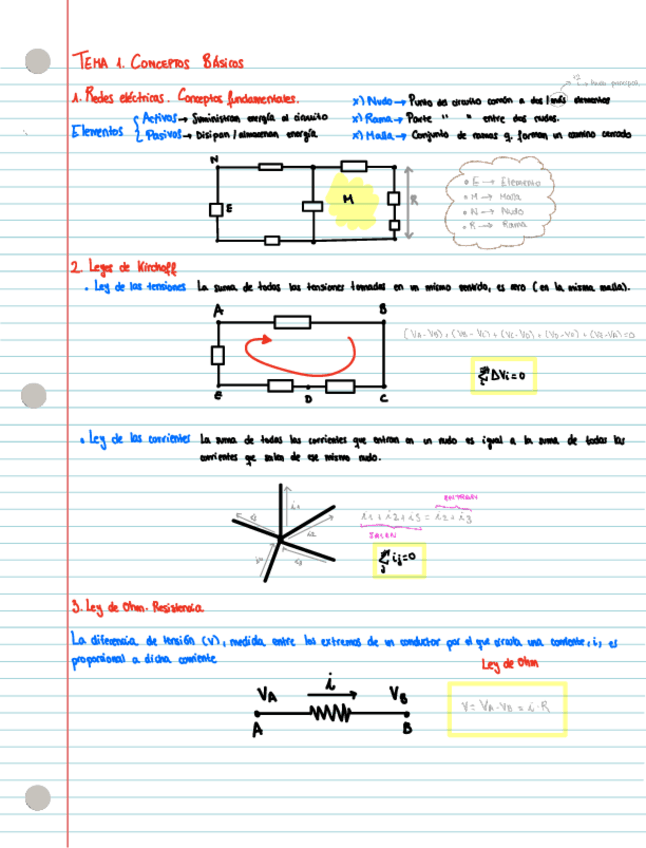 TEMA 1. CONCEPTOS BÁSICOS
1. Redes eléctricas. Conceptos fundamentales.
Elementos
Activos → Suministran energía al circuito
Pasivos → Disipan / almacenan energía
x) Nudo → Punto del circuito común a dos / más elementos
x) Rama → Parte " " entre dos nudos.
x) Malla → Conjunto de ramas q. forman un camino cerrado
N
E
M
R
• E → Elemento
• M → Malla
• N → Nudo
• R → Rama
2. Leyes de Kirchoff
• Ley de las tensiones La suma de todas las tensiones tomadas en un mismo sentido, es cero (en la misma malla).
A B
E D C
(VA-VB) + (VB-VC) + (VC-VD) + (VD-VE) + (VE-VA) = 0
ΔVi = 0
• Ley de las corrientes La suma de todas las corrientes que entran en un nudo es igual a la suma de todas las
corrientes que salen de ese mismo nudo.
i1
i2
ENTRAN
= i2 + i3
SALEN
ij = 0
3. Ley de Ohm. Resistencia
La diferencia de tensión (V), medida entre los extremos de un conductor por el que circula una corriente, i, es
proporcional a dicha corriente
Ley de Ohm
VA i VB
A B
V = VA - VB = i · R